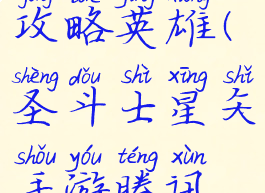 攻略英雄(
shèng dǒu shì xīng shǐ
圣斗士星矢
shǒu yóu téng xùn
手游腾讯